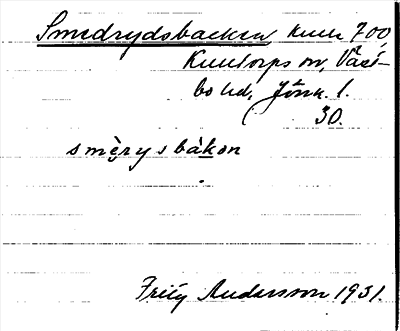 Smedrydsbacken, kulle 700
Kulltorps sn, Väst-
bo hd, Jönk. l.
30.
smèrysbàkən
Fritz Andersson 1931.